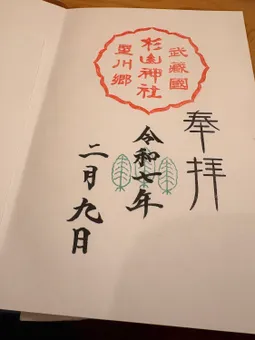 奉拝
武蔵國
杉山神社
星川郷
令和七年
二月九日